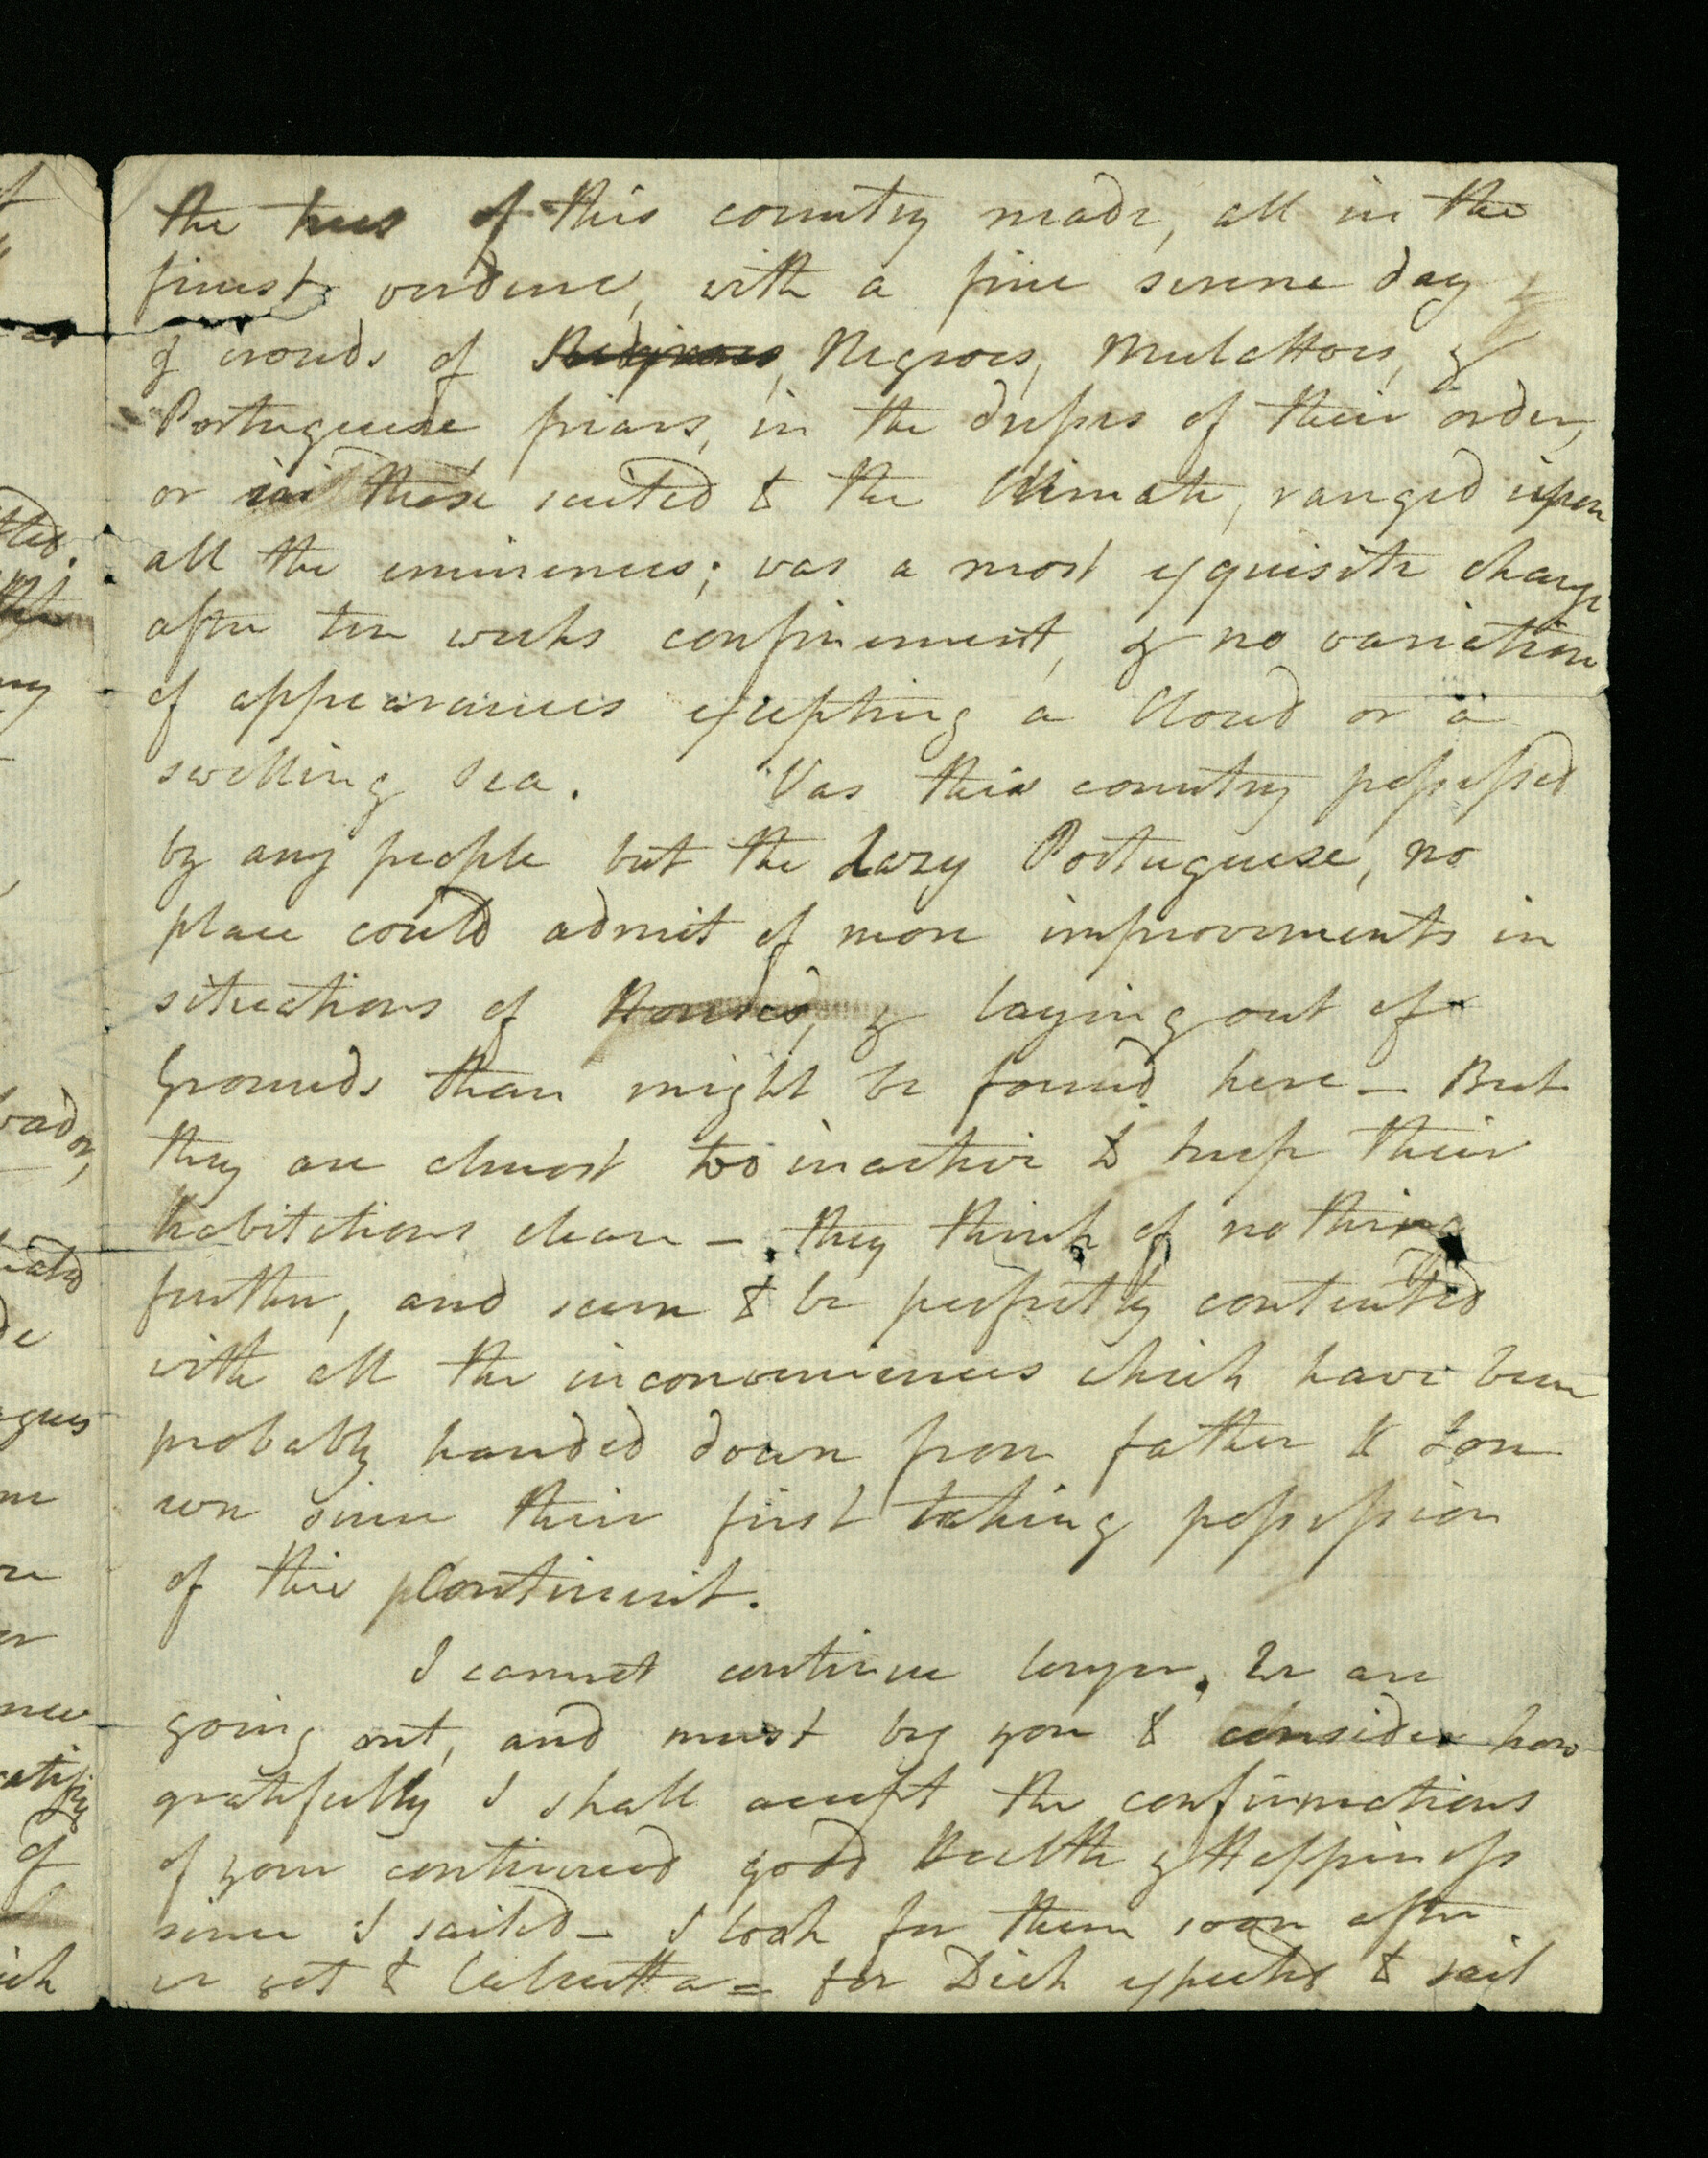 the trees of this country made, all in the
finest verdure, with a fine serene day &
& crouds of Negroes, Mulattoes, &
Portuguese friars, in the dresses of their order,
or in those suited to the Climate, ranged upon
all the eminences; was a most exquisite change
after ten weeks confinement, & no variation
of appearances excepting a Cloud or a
swelling sea. Was this country possessed
by any people but the Lazy Portuguese, no
place could admit of more improvements in
situations of Houses, & laying out of
Grounds than might be found here — But
they are almost too inactive to keep their
habitations clean — they think of nothing
further, and seem to be perfectly contented
with all the inconveniences which have been
probably handed down from father to Son
ever since their first taking possession
of this Continent.
I cannot continue longer. We are
going out, and must beg you to consider how
gratefully I shall accept the confirmations
of your continued good Health & Happiness
since I sailed — I look for them soon after
we get to Calcutta = for Dick expected to sail